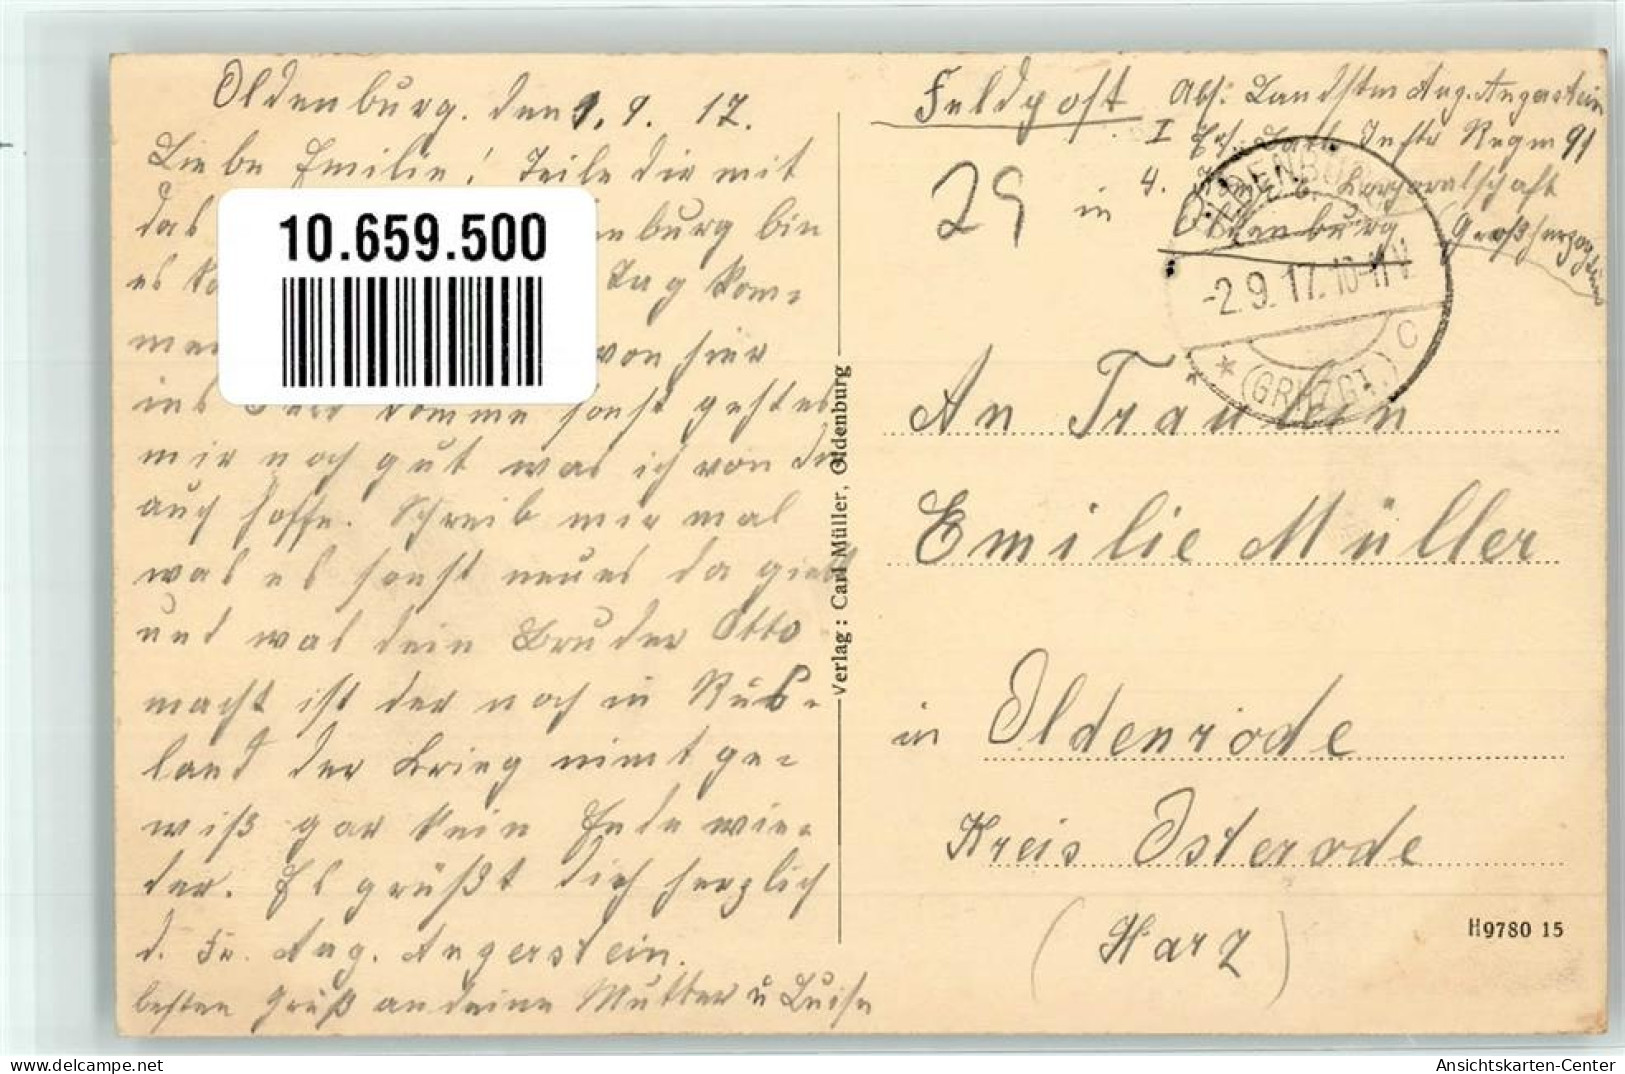 Oldenburg. den 1. 9. 17.
Liebe Emilie! Teile dir mit
das
nburg bin
es
Tag kom-
men
von hier
ins Feld komme sonst geht es
mir noch gut was ich von dir
auch hoffe. Schreib mir mal
was es sonst neues da giebt
und was dein Bruder Otto
macht ist der noch in Rus-
land der Krieg nimt ge-
wiß gar kein Ende wie-
der. Es grüßt dich herzlich
d. Fr. Aug. Angerstein.
besten Gruß an deine Mutter u Luise
10.659.500
Verlag: Carl Müller, Oldenburg
Feldpost
Abs: Landstm Aug. Angerstein
I Ers. Batl. Inftr Regm 91
4. Komp. 6. Korporalschaft
in Oldenburg (Großherzogtum
29
OLDENBURG
-2.9.17.10-11V
* (GRHZGT.) C
An Fraulein
Emilie Müller
in Oldenrode
Kreis Osterode
(Harz)
H9780 15
Ansichtskarten-Center